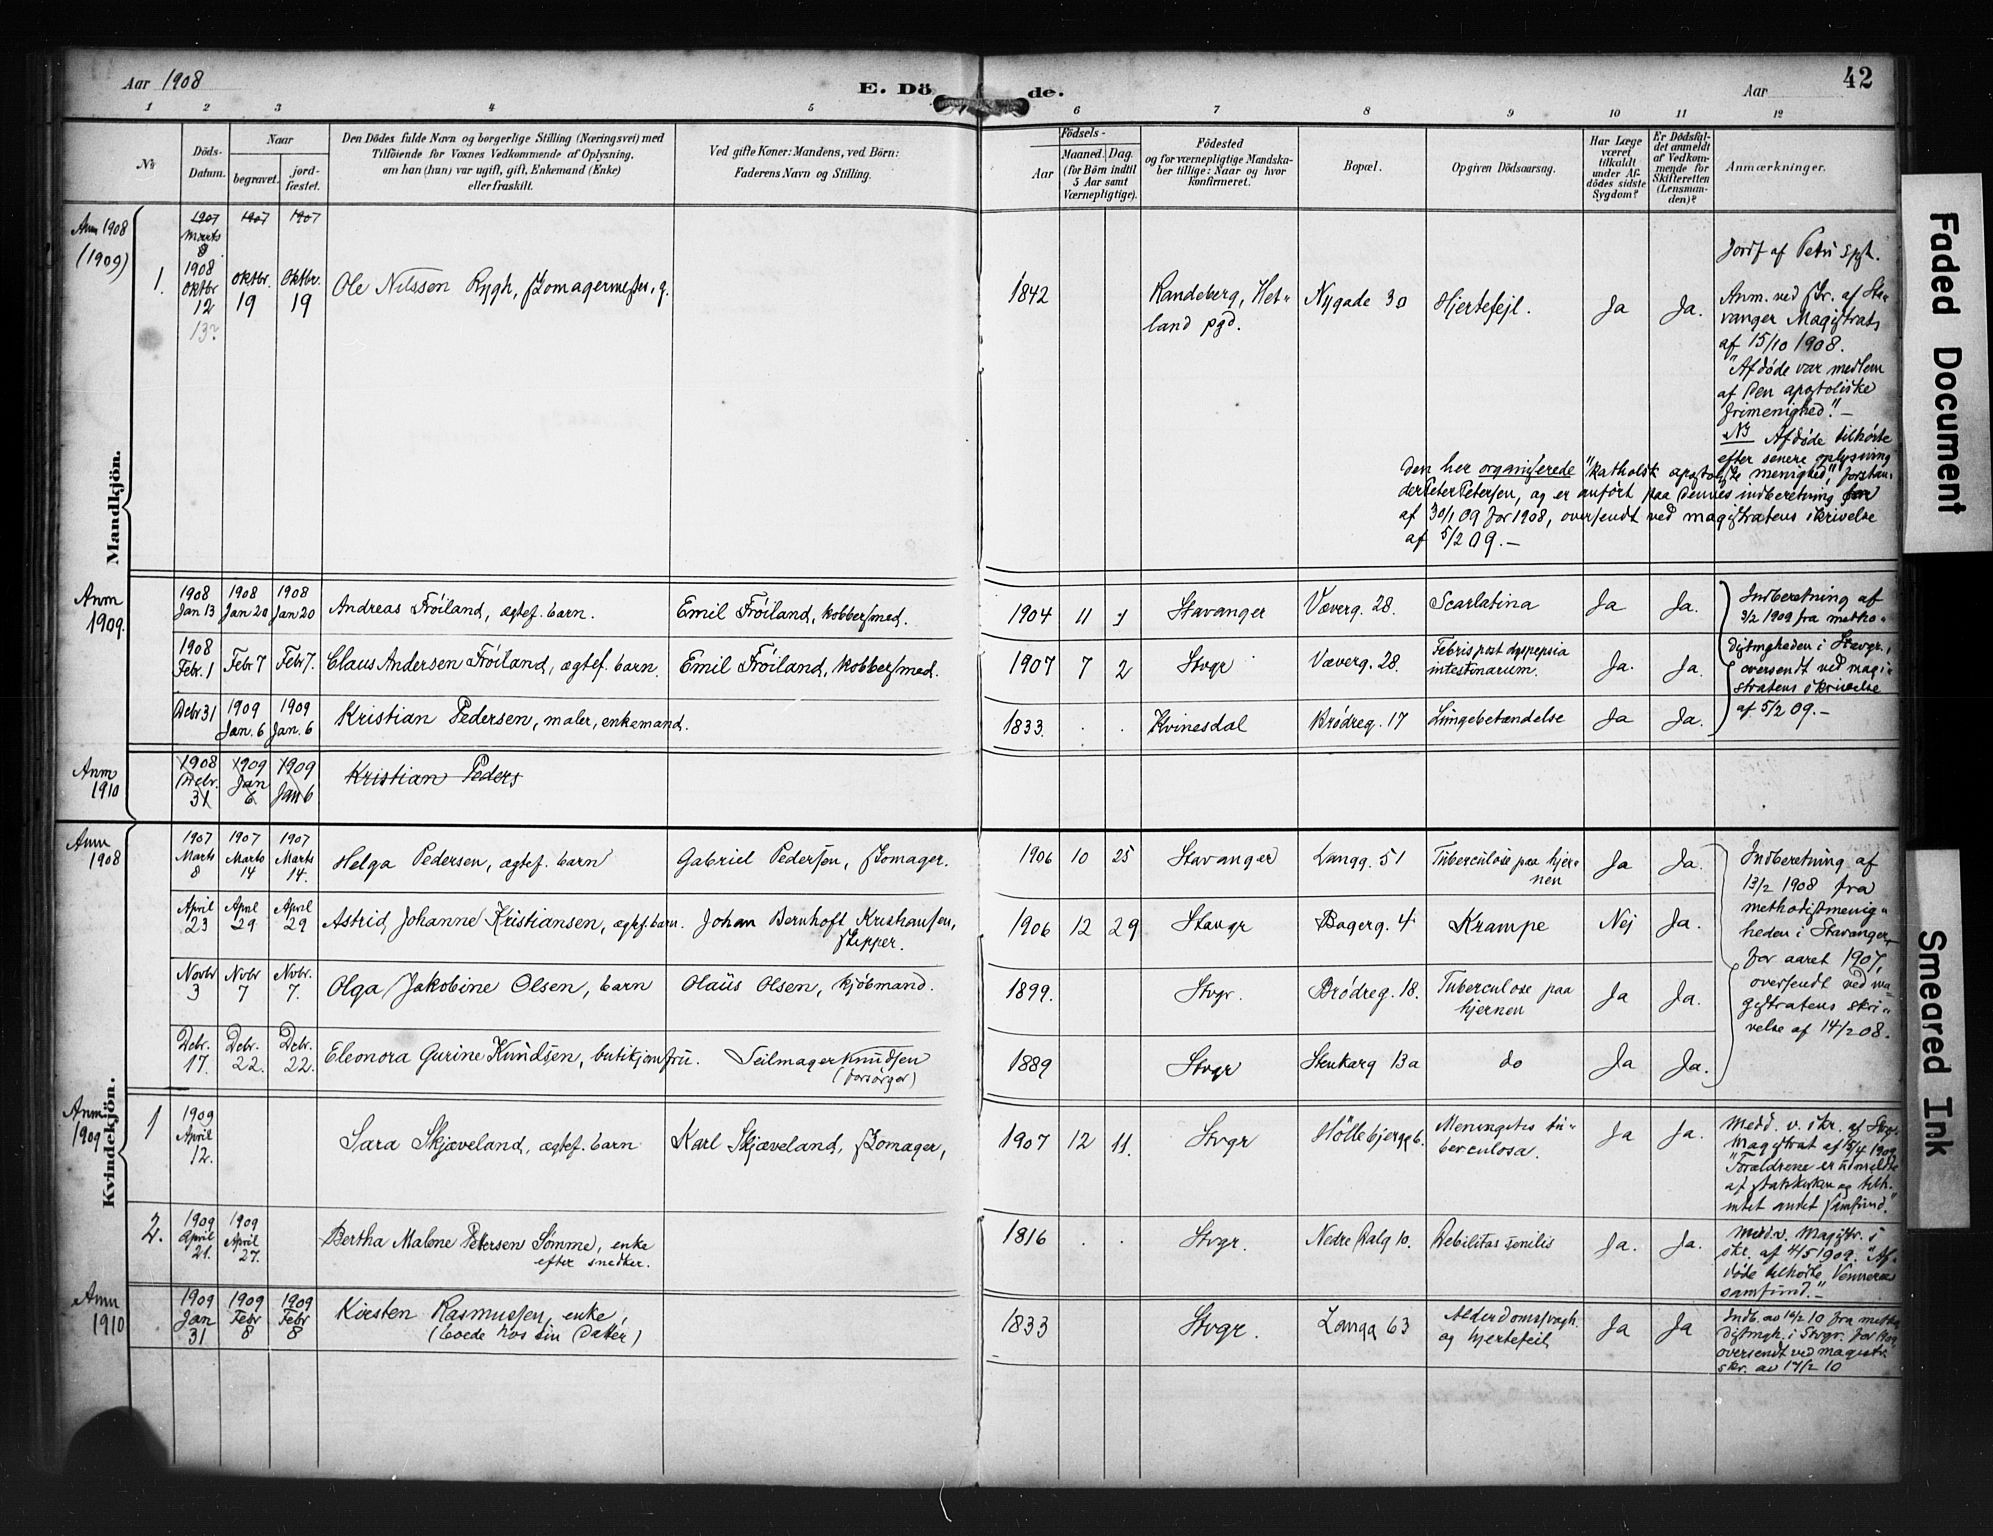 Aar 1908
E. Döde.
Aar
42
1 2 3 4 5 6 7 8 9 10 11 12
№
Döds-Datum.
Naar
begravet.
jord-fæstet.
Den Dödes fulde Navn og borgerlige Stilling (Næringsvei) med
Tilföiende for Voxnes Vedkommende af Oplysning,
om han (hun) var ugift, gift, Enkemand (Enke)
eller fraskilt.
Ved gifte Koner: Mandens, ved Börn:
Faderens Navn og Stilling.
Födsels-
Aar
Maaned. Dag.
(for Börn indtil
5 Aar samt
Værnepligtige).
Födested
og for værnepligtige Mandska-
ber tillige: Naar og hvor
konfirmeret.
Bopæl.
Opgiven Dödsaarsag.
Har Læge
været
tilkaldt
under Af-
dödes sidste
Sygdom?
Er Dödsfal-
det anmeldt
af Vedkom-
mende for
Skifteretten
(Lensman-
den)?
Anmærkninger.
Mandkjön.
Anm 1908
(1909)
1907 1907 1907
Marts
8
1. 1908 Oktbr 12 13? Oktbr. 19 Oktbr. 19 Ole Nilssen Rygh, skomagermester, g. 1842 Randeberg, Het-
land pgd. Nygade 30 Hjertefejl. Ja Ja.
Jordf af Petri spt.
Anm. ved skr. af Sta-
vanger Magistrat
af 15/10 1908.
"Afdøde var medlem
af Den apostoliske
frimenighed." –
NB Afdøde tilhørte
efter senere oplysning
den her organiserede "katholsk apostoliske menighed," forstan-
der Peter Petersen, og er anført paa dennes indberetning for
af 30/1 09 for 1908, oversendt ved magistratens skrivelse
af 5/2 09. –
Anm 1909.
1908 Jan 13 1908 Jan 20 1908 Jan 20 Andreas Frøiland, ægtef. barn. Emil Frøiland, kobbersmed. 1904 11 Stavanger Væverg. 28. Scarlatina Ja Ja.
1908 Febr. 1 Febr 7 Febr 7. Claus Andersen Frøiland, ægtef. barn. Emil Frøiland, kobbersmed. 1907 7 2 Stvgr Væverg. 28. Febris post dyspepsia
intestinarum. Ja. Ja.
Debr 31 1909 Jan. 6 1909 Jan. 6 Kristian Pedersen, maler, enkemand. 1833. . . Kvinesdal Brødreg. 17 Lungebetændelse Ja Ja.
Indberetning af
3/2 1909 fra metho-
distmgheden i Stavgr.,
oversendt ved magi-
stratens skrivelse
af 5/2 09. –
Anm 1910
1908 Debr. 31 1909 Jan 6 1909 Jan 6 Kristian Peders
Kvindekjön.
Anm 1908
1907 Marts 8 1907 Marts 14 1907 Marts 14. Helga Pedersen, ægtef. barn Gabriel Pedersen, skomager. 1906 10 25 Stavanger Langg. 51 Tuberculose paa hjer-
nen Ja Ja.
April 23 April 29 April 29 Astrid Johanne Kristiansen, ægtef. barn. Johan Bernhoft Kristiansen,
skipper. 1906 12 29 Stavgr Bagerg. 4 Krampe Nej Ja.
Novbr 3 Nvbr 7 Nvbr. 7. Olga Jakobine Olsen, barn Olaus Olsen, kjøbmand. 1899. Stvgr. Brødreg. 18. Tuberculose paa
hjernen Ja Ja.
Debr. 17. Debr. 22. Debr. 22. Eleonora Gurine Knudsen, butikjomfru. Seilmager Knudsen
(forsørger) 1889 Stvgr Stenkarg 13a do Ja Ja.
Indberetning af
13/2 1908 fra
methodistmenig-
heden i Stavanger
for aaret 1907,
oversendt ved ma-
gistratens skri-
velse af 14/2 08.
Anm. 1909
1 1909 April 12. Sara Skjæveland, ægtef. barn Karl Skjæveland, skomager, 1907 12 11. Stvgr Høllebjergg 6. Meningites tu-
berculosa. Ja Ja.
Medd. v. skr. af Stvgr.
Magistrat af 15/4 1909
"Forældrene er udmeldte
af statskirken og tilh.
intet andet samfund."
2. 1909 April 21. 1909 April 27. Bertha Malene Pettersen Sømme, enke
efter snedker. 1816 . . Stvgr. Nedre Dalg 10. Debilitas senilis Ja. Ja.
Medd. v. Magistr. i
skr. af 4/5 1909. "Af-
døde tilhørte Vennenes
samfund." –
Anm 1910
1909 Jan 31 1909 Febr 8 1909 Febr 8 Kirsten Rasmussen, enke
(boede hos sin datter) 1833 Stvgr. Langg 63 Alderdomssvagh.
og hjertefeil Ja Ja
Indb. av 16/2 10 fra metho
distmgh. i Stvgr. for 1909
oversendt ved magistr.
skr. av 17/2 10
Faded Document
Smeared Ink